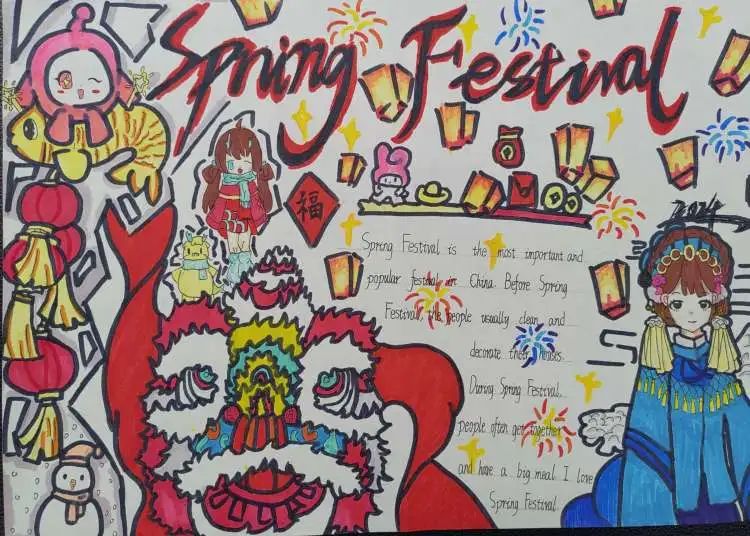 Spring Festival
福
2024
Spring Festival is the most important and
popular festival in China. Before Spring
Festival, the people usually clean and
decorate their houses.
During Spring Festival,
people often get together
and have a big meal. I love
Spring Festival.